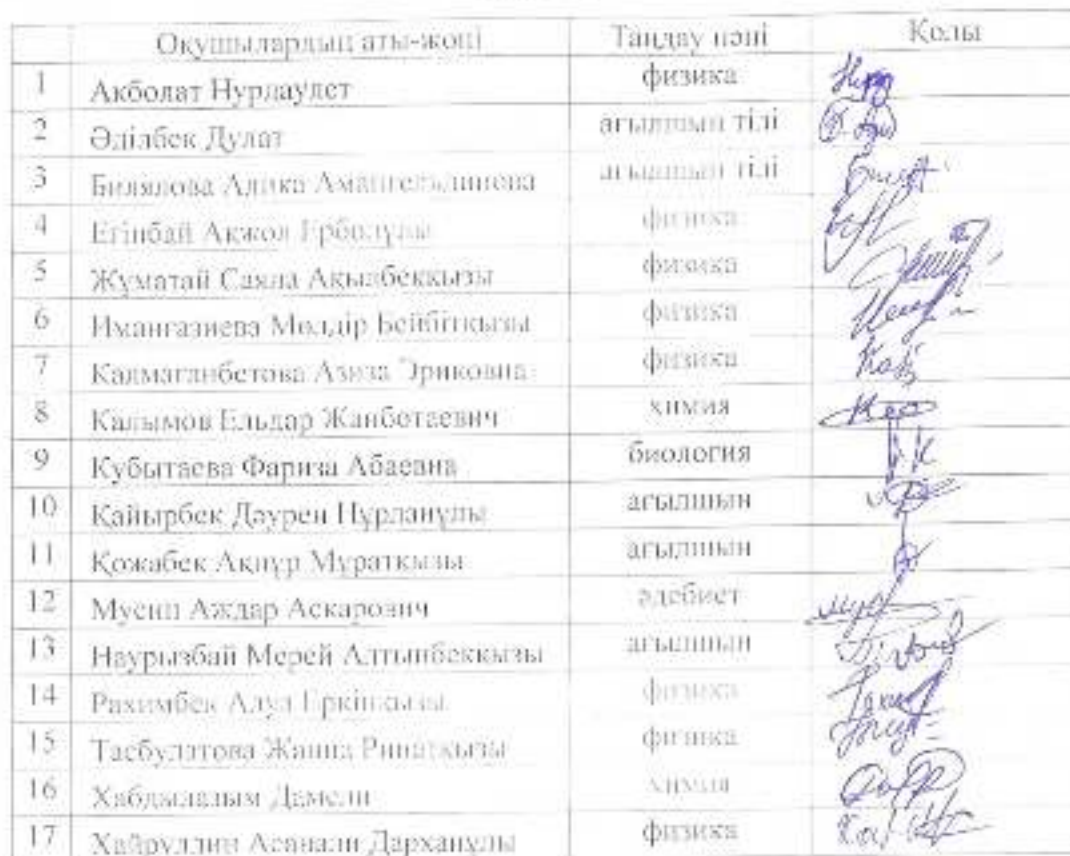 Оқушылардың аты-жөні Таңдау пәні Қолы
1 Ақболат Нұрдәулет физика
2 Әділбек Дулат ағылшын тілі
3 Билялова Алика Амангельдиновна ағылшын тілі
4 Егінбай Ақжол Ерболұлы физика
5 Жұматай Саяна Ақылбекқызы физика
6 Имангазиева Мөлдір Бейбітқызы физика
7 Калмаганбетова Азиза Эриковна физика
8 Калымов Ельдар Жанботаевич химия
9 Кубытаева Фариза Абаевна биология
10 Қайырбек Дәурен Нұрланұлы ағылшын
11 Қожабек Ақнұр Мұратқызы ағылшын
12 Мусин Аждар Аскарович әдебиет
13 Наурызбай Мерей Алтынбекқызы ағылшын
14 Рахимбек Алуа Еркінқызы физика
15 Тасбулатова Жанна Ринатқызы физика
16 Хабдылазым Дамели химия
17 Хайруллин Асанали Дарханұлы физика